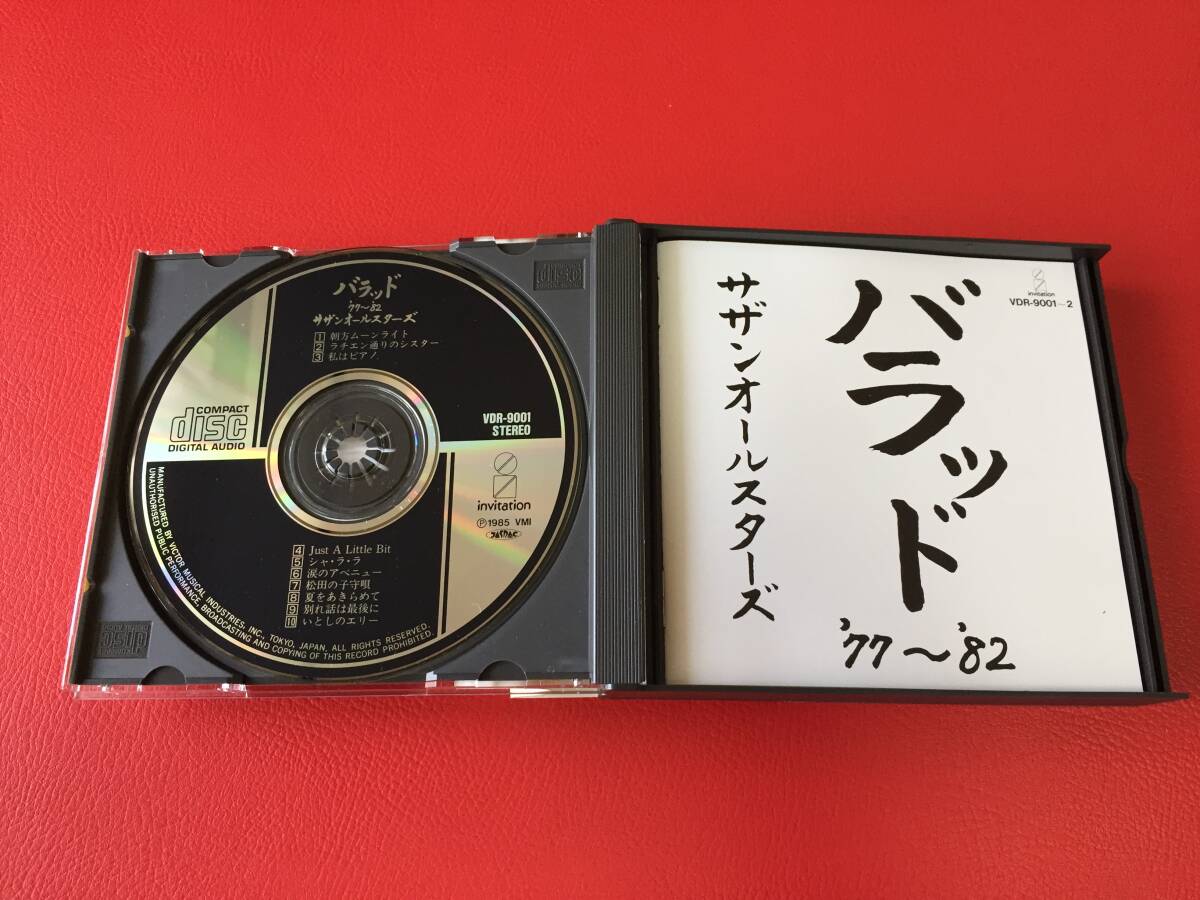 バラッド
'77〜'82
サザンオールスターズ
1 朝方ムーンライト
2 ラチエン通りのシスター
3 私はピアノ
COMPACT
disc
DIGITAL AUDIO
VDR-9001
STEREO
invitation
℗1985 VMI
JASRAC
4 Just A Little Bit
5 シャ・ラ・ラ
6 涙のアベニュー
7 松田の子守唄
8 夏をあきらめて
9 別れ話は最後に
10 いとしのエリー
MANUFACTURED BY VICTOR MUSICAL INDUSTRIES, INC., TOKYO, JAPAN, ALL RIGHTS RESERVED.
UNAUTHORISED PUBLIC PERFORMANCE, BROADCASTING AND COPYING OF THIS RECORD PROHIBITED.
invitation
VDR-9001〜2
バラッド
'77〜'82
サザンオールスターズ